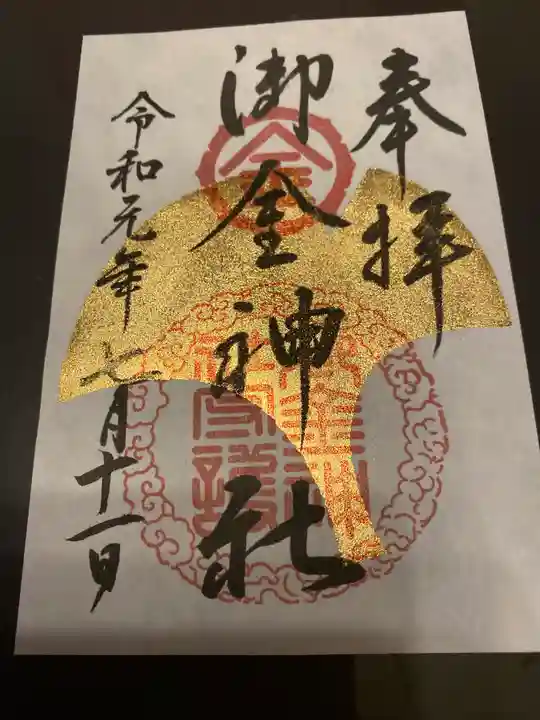 奉拝
御金神社
令和元年七月十一日